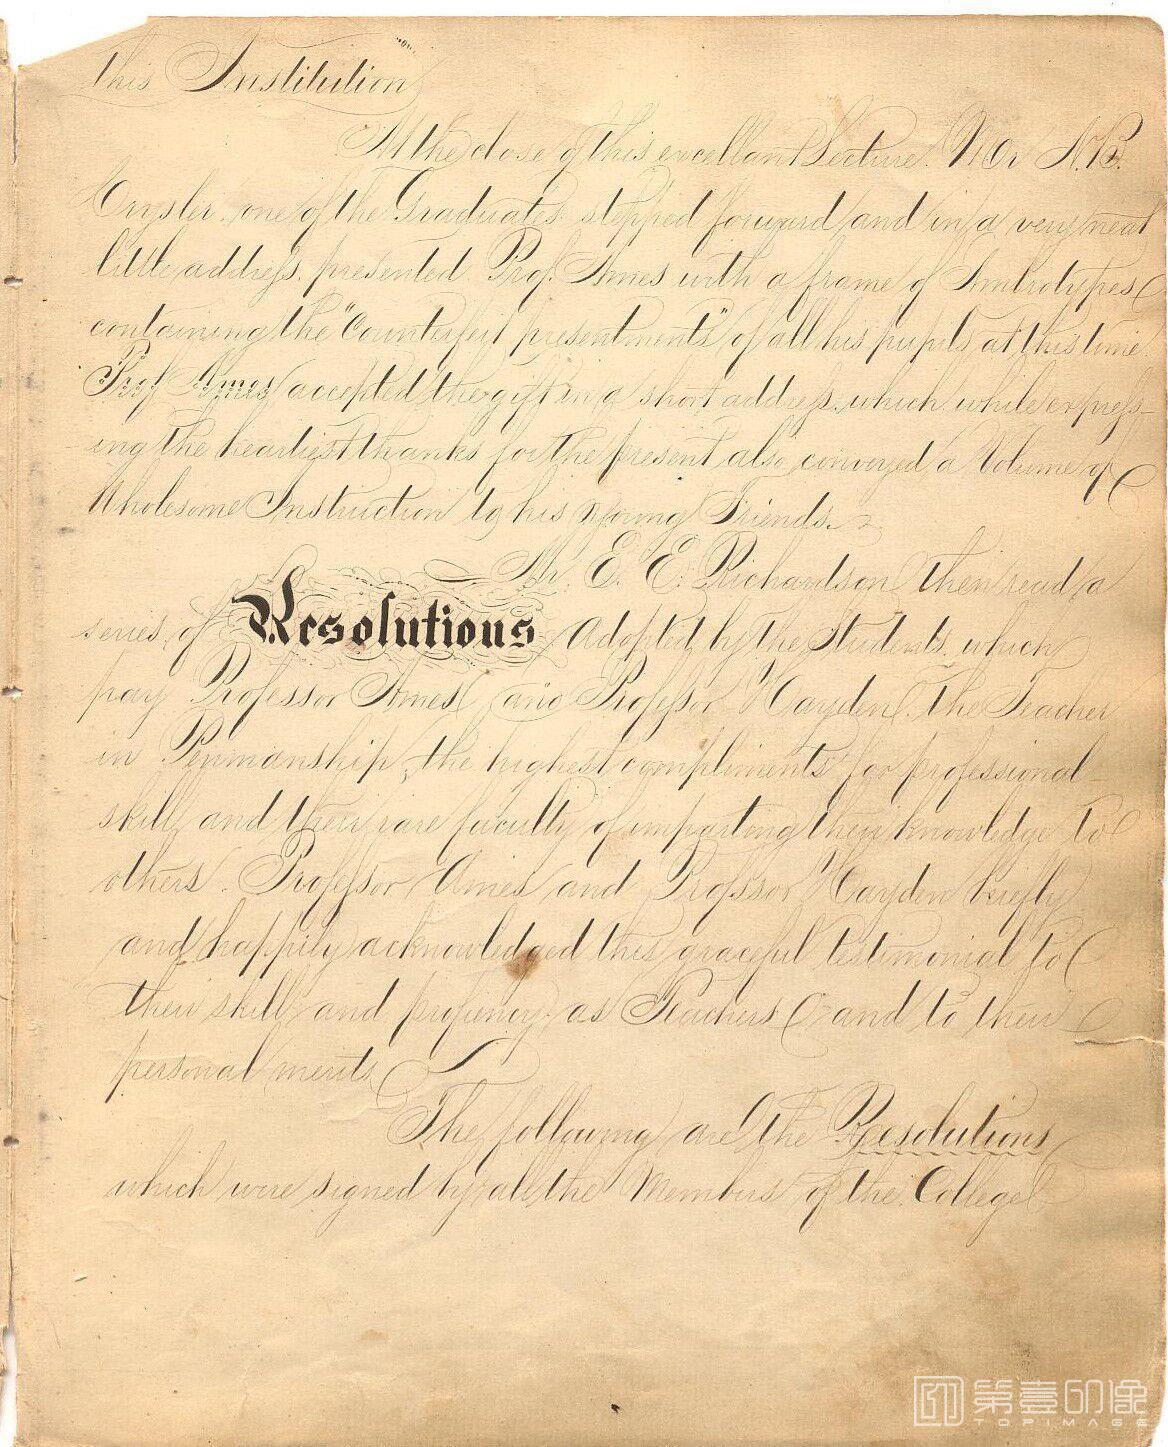 this Institution
At the close of this excellant Lecture, Mr N.B.
Crysler one of the Graduates stepped forward and in a very neat
little address, presented Prof. Ames with a frame of Ambrotypes
containing the "Counterfeit presentments" of all his pupils at this time.
Prof Ames accepted the gift in a short address, which while express-
ing the heartiest thanks for the present also conveyed a Volume of
Wholesome Instruction to his young Friends.
Mr. E. E. Richardson then read a
series of Resolutions Adopted by the Students, which
pay Professor Ames and Professor Hayden, the Teacher
in Penmanship, the highest compliments for professional
skill, and their rare faculty of imparting their knowledge to
others. Professor Ames and Professor Hayden briefly
and happily acknowledged this graceful testimonial to
their skill and proficency as Teachers and to their
personal merits
The following are the Resolutions
which were signed by all the Members of the College
第壹印像
TOPIMAGE